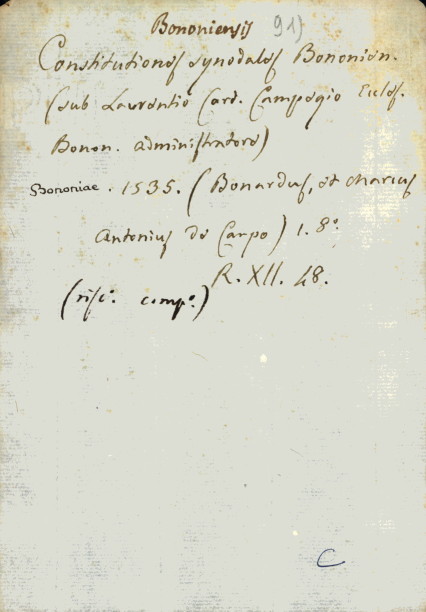 Bononiensis 91)
Constitutiones synodales Bononien.
(sub Laurentio Card. Campegio Eccles.
Bonon. administratore)
Bononiae. 1535. (Bonardus, et Marcus
Antonius de Carpo) 1. 8.º
R. XII. 48.
(risc.º comp.º)
C